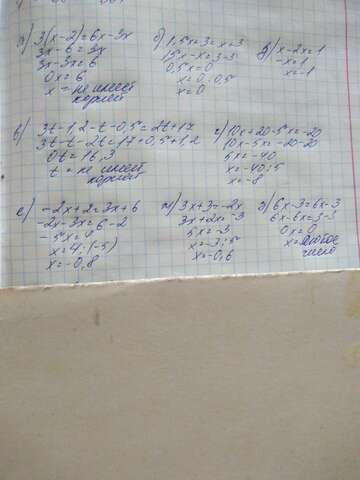 а) 3(x-2)=6x-3x
3x-6=3x
3x-3x=6
0x=6
x - не имеет
корней
б) 1,5x+3=x+3
1,5x-x=3-3
0,5x=0
x=0:0,5
x=0
д) x-2x=1
-x=1
x=-1
в) 3t-1,2-t-0,5=2t+17
3t-t-2t=17+0,5+1,2
0t=16,3
t = не имеет
корней
г) 10x+20-5x=-20
10x-5x=-20-20
5x=-40
x=-40:5
x=-8
е) -2x+2=3x+6
-2x-3x=6-2
-5x=4
x=4:(-5)
x=-0,8
ж) 3x+3=-2x
3x+2x=-3
5x=-3
x=-3:5
x=-0,6
з) 6x-3=6x-3
6x-6x=3-3
0x=0
x=любое
число